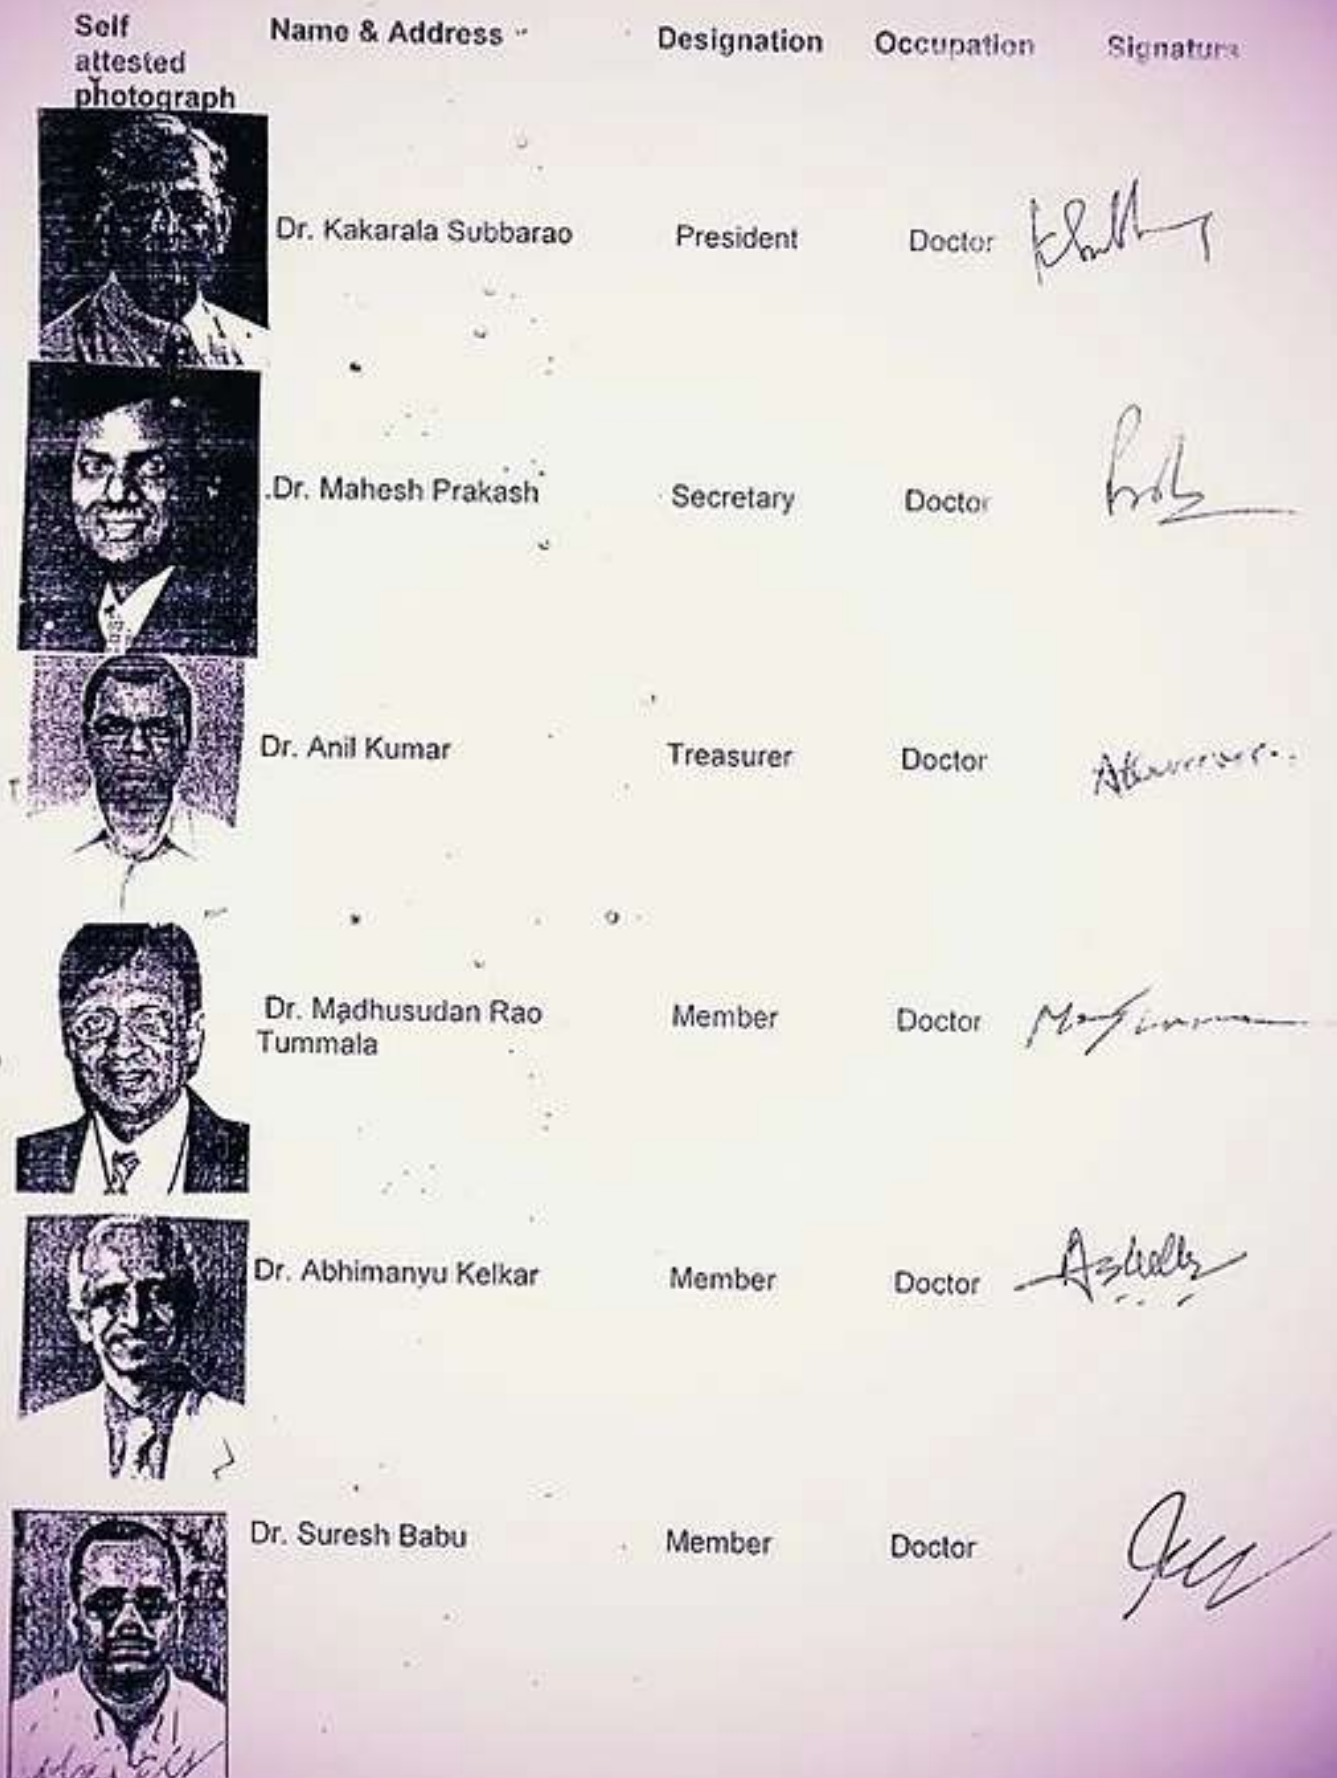 Self
attested
photograph
Name & Address
Designation
Occupation
Signature
Dr. Kakarala Subbarao President Doctor
Dr. Mahesh Prakash Secretary Doctor
Dr. Anil Kumar Treasurer Doctor
Dr. Madhusudan Rao Member Doctor
Tummala
Dr. Abhimanyu Kelkar Member Doctor
Dr. Suresh Babu Member Doctor